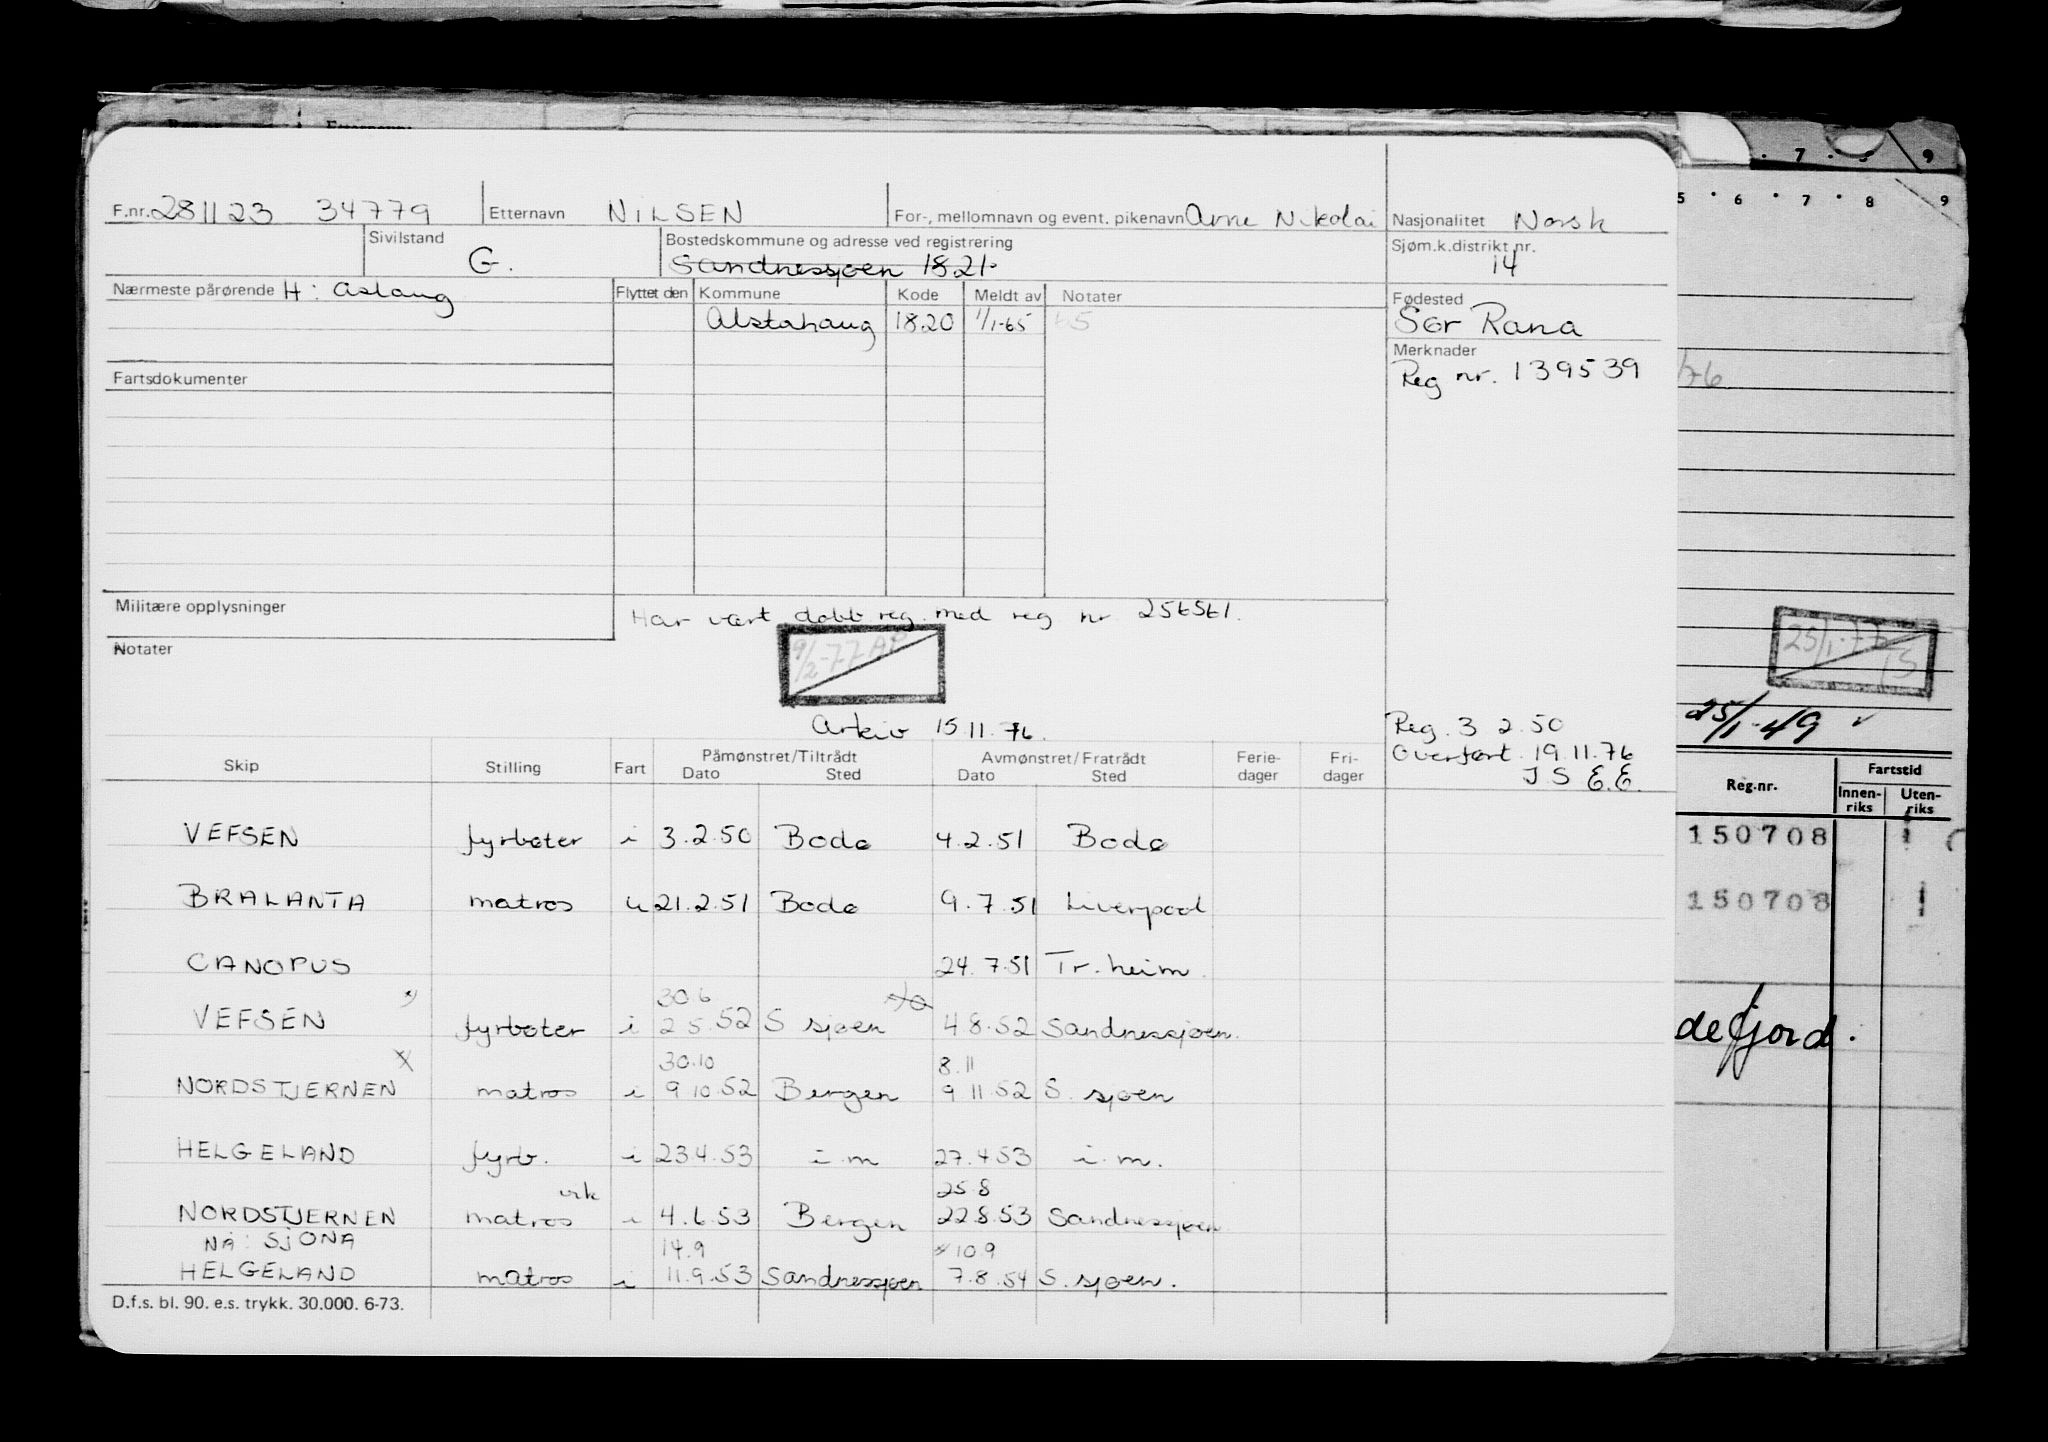 7 . 8 9
5 . 6 . 7 . 8 9
F.nr. 281123 34779 Etternavn NILSEN For-, mellomnavn og event. pikenavn Arne Nikolai Nasjonalitet Norsk
Sivilstand G. Bostedskommune og adresse ved registrering Sandnessjøen 1821 Sjøm.k.distrikt nr. 14
Nærmeste pårørende H: Aslaug Flyttet den Kommune Kode Meldt av Notater Fødested
Alstahaug 1820 1/1-65 65 Sør Rana
Merknader
Fartsdokumenter Reg nr. 139539
Militære opplysninger Har vært dobb reg. med reg nr 256561.
Notater 9/2-77 AP
25/1-77
Arkiv 15.11.76. Reg. 3 2.50
Overført 19.11.76
J S E.E.
25/1-49
Skip Stilling Fart Påmønstret/Tiltrådt Dato Sted Avmønstret/Fratrådt Dato Sted Ferie-dager Fri-dager
Reg.nr. Fartstid Innen-riks Uten-riks
VEFSEN fyrbøter i 3.2.50 Bodø 4.2.51 Bodø
150708
BRALANTA matros u 21.2.51 Bodø 9.7.51 Liverpool
150708
CANOPUS 24.7.51 Tr.heim.
30.6
VEFSEN fyrbøter i 2 5.52 S sjøen 4.8.52 Sandnessjøen.
defjord.
30.10 8.11
NORDSTJERNEN matros i 9 10.52 Bergen 9 11.52 S. sjøen
HELGELAND fyrb. i 23.4.53 i.m 27.4.53 i.m.
25.8
NORDSTJERNEN matros i 4.6.53 Bergen 22.8.53 Sandnessjøen
NÅ: SJONA 14.9 10.9
HELGELAND matros i 11.9.53 Sandnessjøen 7.8.54 S. sjøen.
D.f.s. bl. 90. e.s. trykk. 30.000. 6-73.